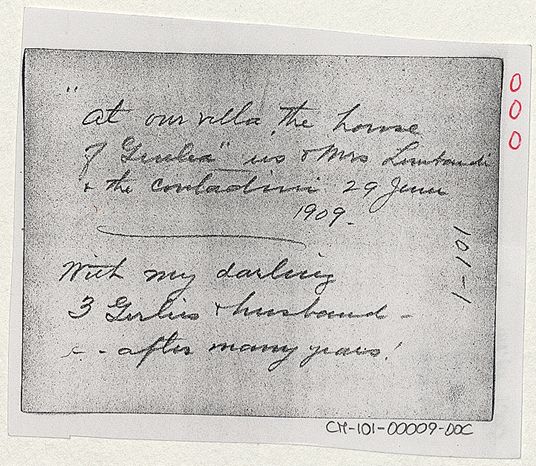 "At our villa, the house
of " us & Mrs Lombardi
& the contadini 29 June
1909.
With my darling
3 Girlies & husband -
after many years!
1-101
000
CM-101-00009-DOC